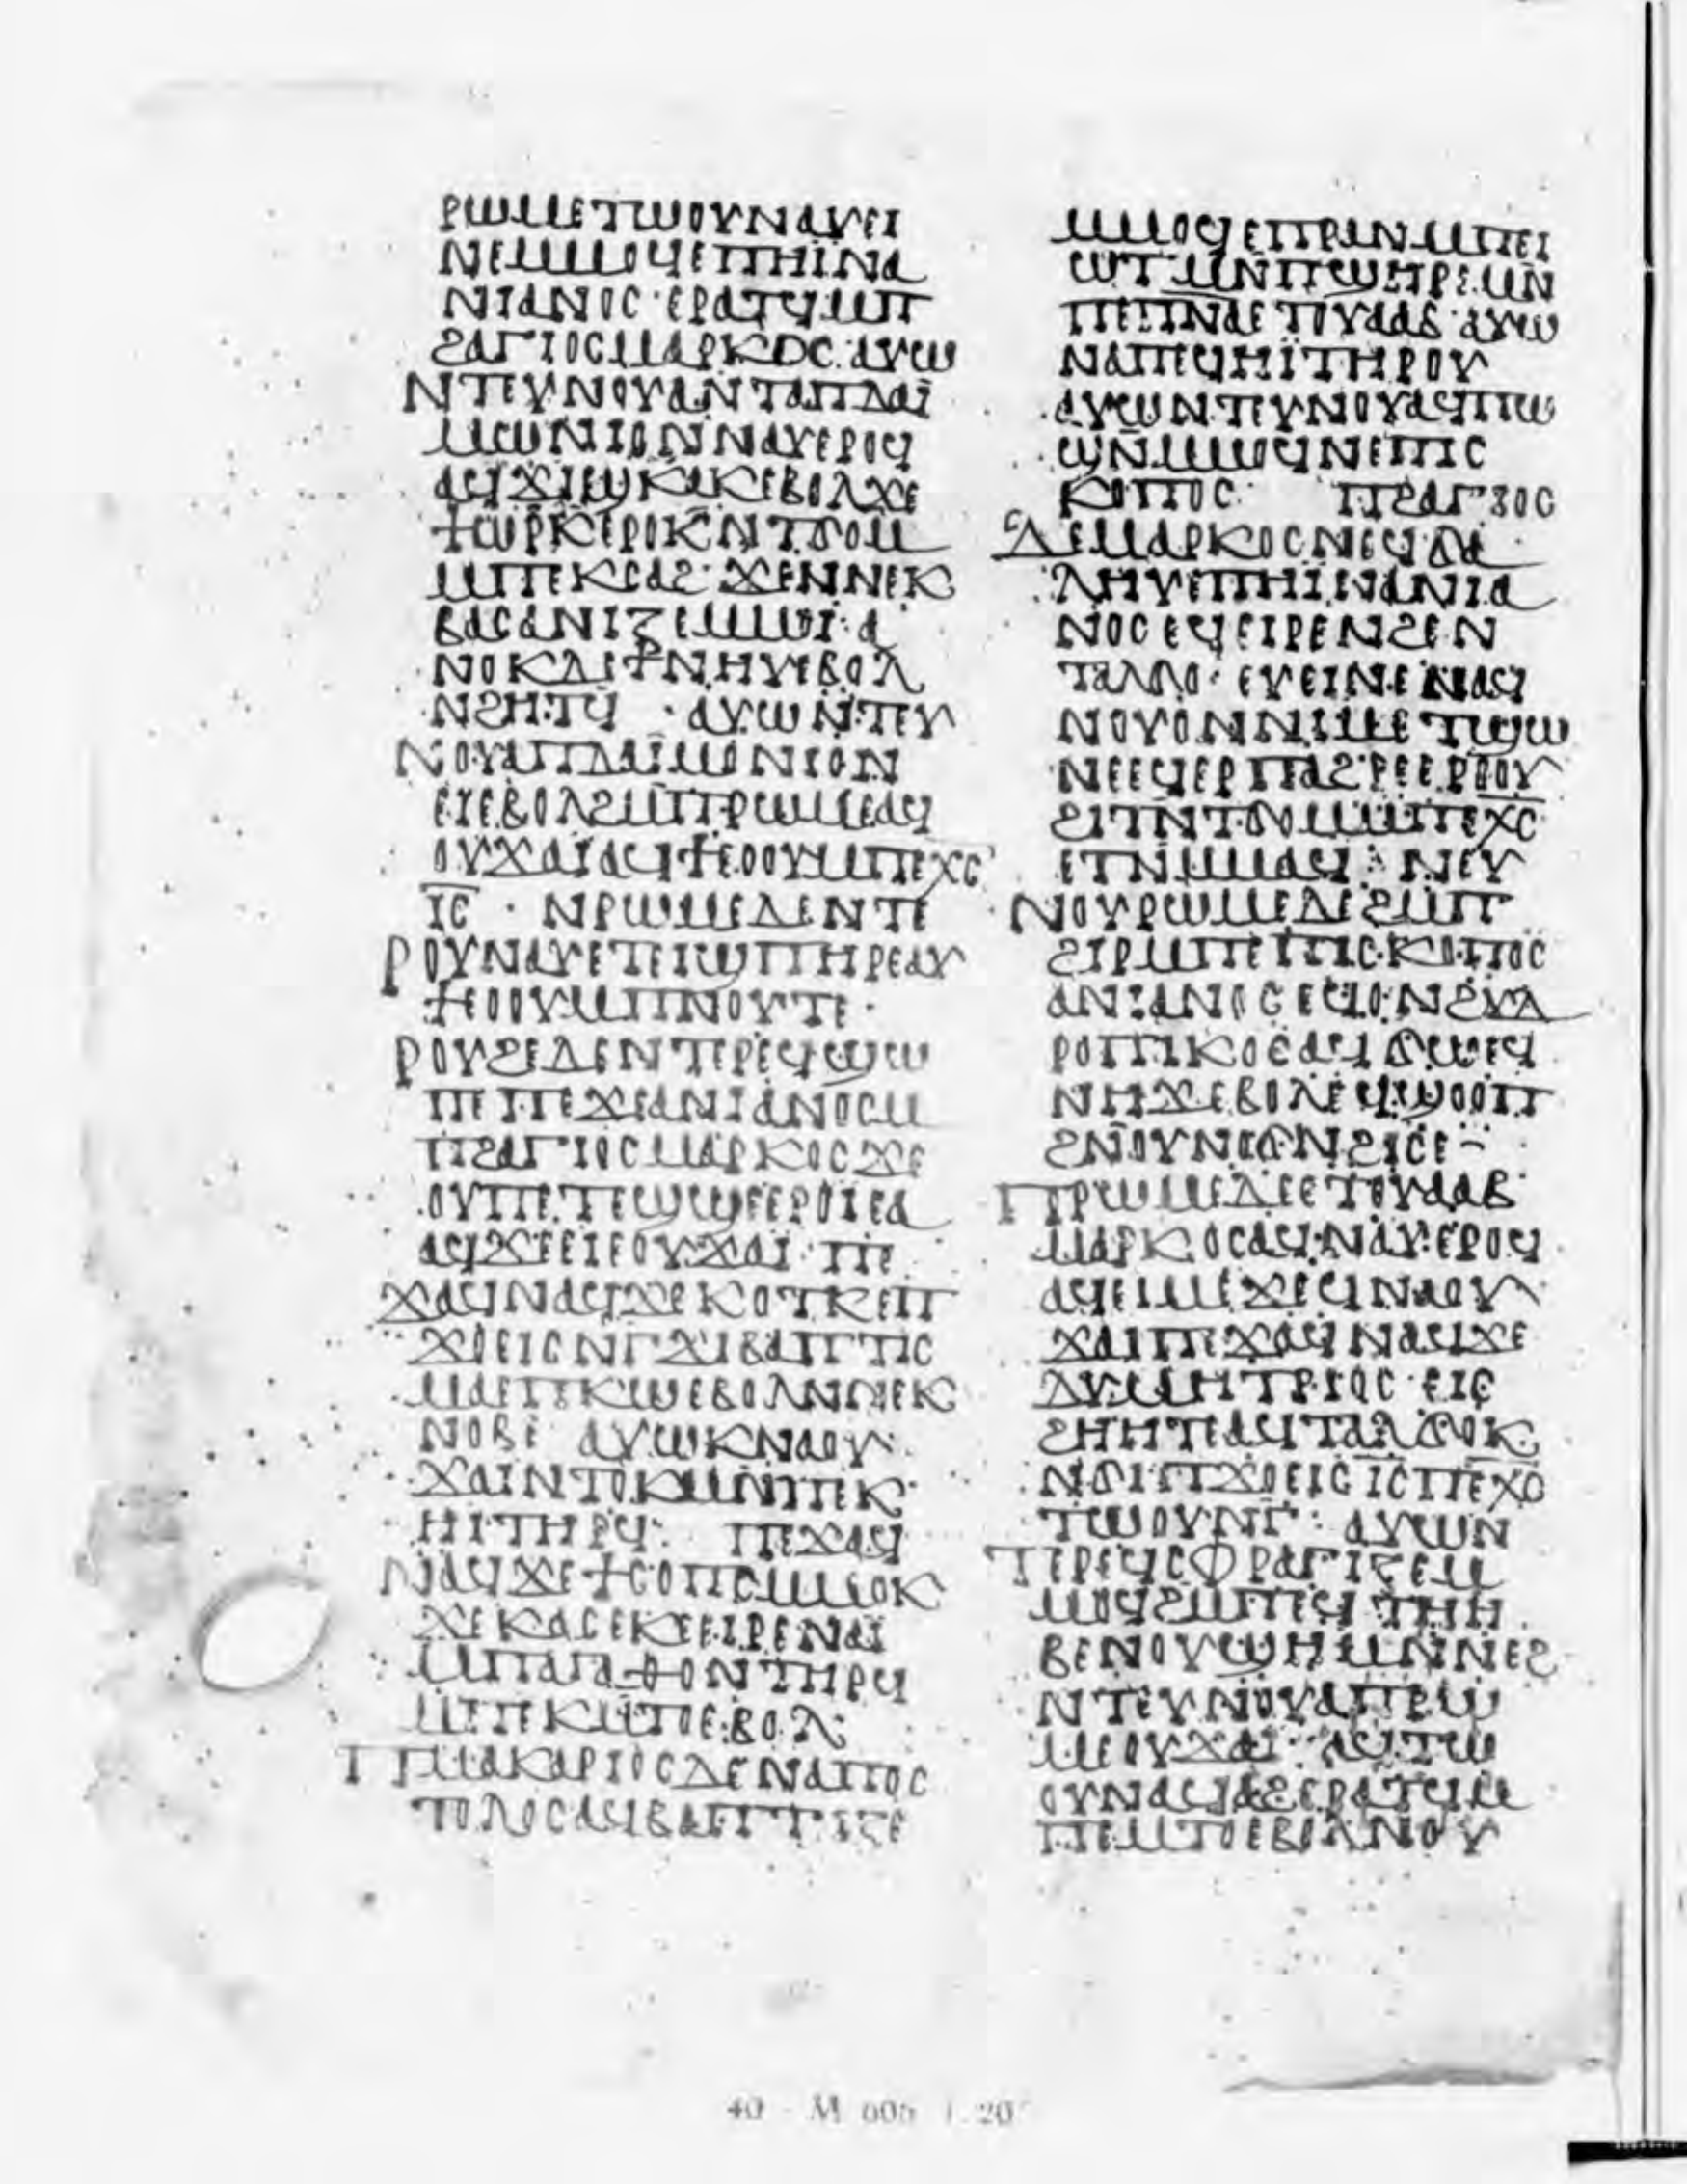 ⲣⲱⲙⲉⲧⲱⲟⲩⲛⲁⲩⲉⲓ
ⲛⲉⲙⲙⲟϥⲉⲡⲏⲓⲛⲁ
ⲛⲓⲁⲛⲟⲥ·ⲉⲣⲁⲧϥⲙⲡ
ϩⲁⲅⲓⲟⲥⲙⲁⲣⲕⲟⲥ·ⲁⲩⲱ
ⲛⲧⲉⲩⲛⲟⲩⲁⲛⲧⲁⲡⲇⲁⲓ̈
ⲙⲱⲛⲓⲟⲛⲛⲁⲩⲉⲣⲟϥ
ⲁϥϫⲓϣⲕⲁⲕⲉⲃⲟⲗϫⲉ
ϯⲱⲣⲕⲉⲣⲟⲕⲛⲧϭⲟⲙ
ⲙⲡⲉⲕⲥⲁϩ·ϫⲉⲛⲛⲉⲕ
ⲃⲁⲥⲁⲛⲓⲍⲉⲙⲙⲟⲓ̈·ⲁ
ⲛⲟⲕⲇⲉϯⲛⲏⲩⲉⲃⲟⲗ
ⲛϩⲏⲧϥ·ⲁⲩⲱⲛⲧⲉⲩ
ⲛⲟⲩⲁⲡⲇⲁⲓ̈ⲙⲟⲛⲓⲟⲛ
ⲉⲓⲉⲃⲟⲗϩⲙⲡⲣⲱⲙⲉⲁϥ
ⲟⲩϫⲁⲓ̈ⲁϥϯⲉⲟⲟⲩⲙⲡⲉⲭ̅ⲥ̅
ⲓ̅ⲥ̅ · ⲛⲣⲱⲙⲉⲇⲉⲛⲧⲉ
ⲣⲟⲩⲛⲁⲩⲉⲧⲉⲓϣⲡⲏⲣⲉⲁⲩ
ϯⲉⲟⲟⲩⲙⲡⲛⲟⲩⲧⲉ·
ⲣⲟⲩϩⲉⲇⲉⲛⲧⲉⲣⲉϥϣⲱ
ⲡⲉⲡⲉϫⲉⲁⲛⲓⲁⲛⲟⲥⲙ
ⲡϩⲁⲅⲓⲟⲥⲙⲁⲣⲕⲟⲥϫⲉ
ⲟⲩⲡⲉⲧⲉϣϣⲉⲉⲣⲟⲓⲉⲁ
ⲁϥϫⲉⲉⲓⲉⲟⲩϫⲁⲓ·ⲡⲉ
ϫⲁϥⲛⲁϥϫⲉⲕⲟⲧⲕⲉⲡ
ϫⲟⲉⲓⲥⲛⲅϫⲓⲃⲁⲡⲧⲓⲥ
ⲙⲁⲉⲡⲕⲱⲉⲃⲟⲗⲛⲛⲉⲕ
ⲛⲟⲃⲉ ⲁⲩⲱⲕⲛⲁⲟⲩ
ϫⲁⲓⲛⲧⲟⲕⲙⲛⲡⲉⲕ
ⲏⲓⲧⲏⲣϥ· ⲡⲉϫⲁϥ
ⲛⲁϥϫⲉϯⲥⲟⲡⲥⲙⲙⲟⲕ
ϫⲉⲕⲁⲥⲉⲕⲉⲉⲓⲣⲉⲛⲁⲓ̈
ⲙⲡⲁⲅⲁⲑⲟⲛⲧⲏⲣϥ
ⲙⲡⲉⲕⲙⲧⲟⲉⲃⲟⲗ·
ⲡⲙⲁⲕⲁⲣⲓⲟⲥⲇⲉⲛⲁⲡⲟⲥ
ⲧⲟⲗⲟⲥⲁϥⲃⲁⲡⲧⲓⲍⲉ
ⲙⲙⲟϥⲉⲡⲣⲁⲛⲙⲡⲉⲓ
ⲱⲧⲙⲛⲡϣⲏⲣⲉ·ⲙⲛ
ⲡⲉⲡ̅ⲛ̅ⲁ̅ⲉⲧⲟⲩⲁⲁⲃ·ⲁⲩⲱ
ⲛⲁⲡⲉϥⲏⲓ̈ⲧⲏⲣⲟⲩ
ⲁⲩⲱⲛⲧⲉⲩⲛⲟⲩⲁϥⲡⲱ
ϣⲛⲙⲙⲟϥⲛⲉⲡⲓⲥ
ⲕⲟⲡⲟⲥ· ⲡϩⲁⲅⲓⲟⲥ
ⲇⲉⲙⲁⲣⲕⲟⲥⲛⲉϥϭⲁ
ⲗⲏⲩⲉⲡⲏⲓⲛⲁⲛⲓⲁ
ⲛⲟⲥⲉϥⲉⲓⲣⲉⲛϩⲉⲛ
ⲧⲁⲗϭⲟ·ⲉⲩⲉⲓⲛⲉⲛⲁϥ
ⲛⲟⲩⲟⲛⲛⲓⲙⲉⲧϣⲱ
ⲛⲉⲉϥⲉⲣⲡⲁϩⲣⲉⲉⲣⲟⲟⲩ
ϩⲓⲧⲛⲧϭⲟⲙⲙⲡⲉⲭ̅ⲥ̅
ⲉⲧⲛⲙⲙⲁϥ: ⲛⲉⲩ
ⲛⲟⲩⲣⲱⲙⲉⲇⲉϩⲙⲡ
ϩⲓⲣⲙⲡⲉⲡⲓⲥⲕⲟⲡⲟⲥ
ⲁⲛⲓⲁⲛⲟⲥⲉϥⲟⲛϩⲩⲇ
ⲣⲟⲡⲓⲕⲟⲥⲁϥϭⲱⲉϥ
ⲛⲏϫⲉⲃⲟⲗⲉϥϣⲟⲟⲡ
ϩⲛⲟⲩⲛⲟϭⲛϩⲓⲥⲉ
ⲡⲣⲱⲙⲉⲇⲉⲉⲧⲟⲩⲁⲁⲃ
ⲙⲁⲣⲕⲟⲥⲁϥⲛⲁⲩⲉⲣⲟϥ
ⲁϥⲉⲓⲙⲉϫⲉϥⲛⲁⲟⲩ
ϫⲁⲓⲡⲉϫⲁϥⲛⲁϥϫⲉ
ⲇⲩⲙⲏⲧⲣⲓⲟⲥ·ⲉⲓⲥ
ϩⲏⲏⲧⲉⲁϥⲧⲁⲗϭⲟⲕ
ⲛϭⲓⲡϫⲟⲉⲓⲥⲓ̅ⲥ̅ⲡⲉⲭ̅ⲥ̅
ⲧⲱⲟⲩⲛⲅ: ⲁⲩⲱⲛ
ⲧⲉⲣⲉϥⲥⲫⲣⲁⲅⲓⲍⲉⲙ
ⲙⲟϥϩⲙⲡⲉϥⲧⲏⲏ
ⲃⲉⲛⲟⲩⲱϣⲏⲙⲛⲛⲉϩ
ⲛⲧⲉⲩⲛⲟⲩⲁⲡⲣⲱ
ⲙⲉⲟⲩϫⲁⲓ·ⲁϥⲧⲱ
ⲟⲩⲛⲁϥⲁϩⲉⲣⲁⲧϥⲙ
ⲡⲉⲙⲧⲟⲉⲃⲟⲗⲛⲟⲩ